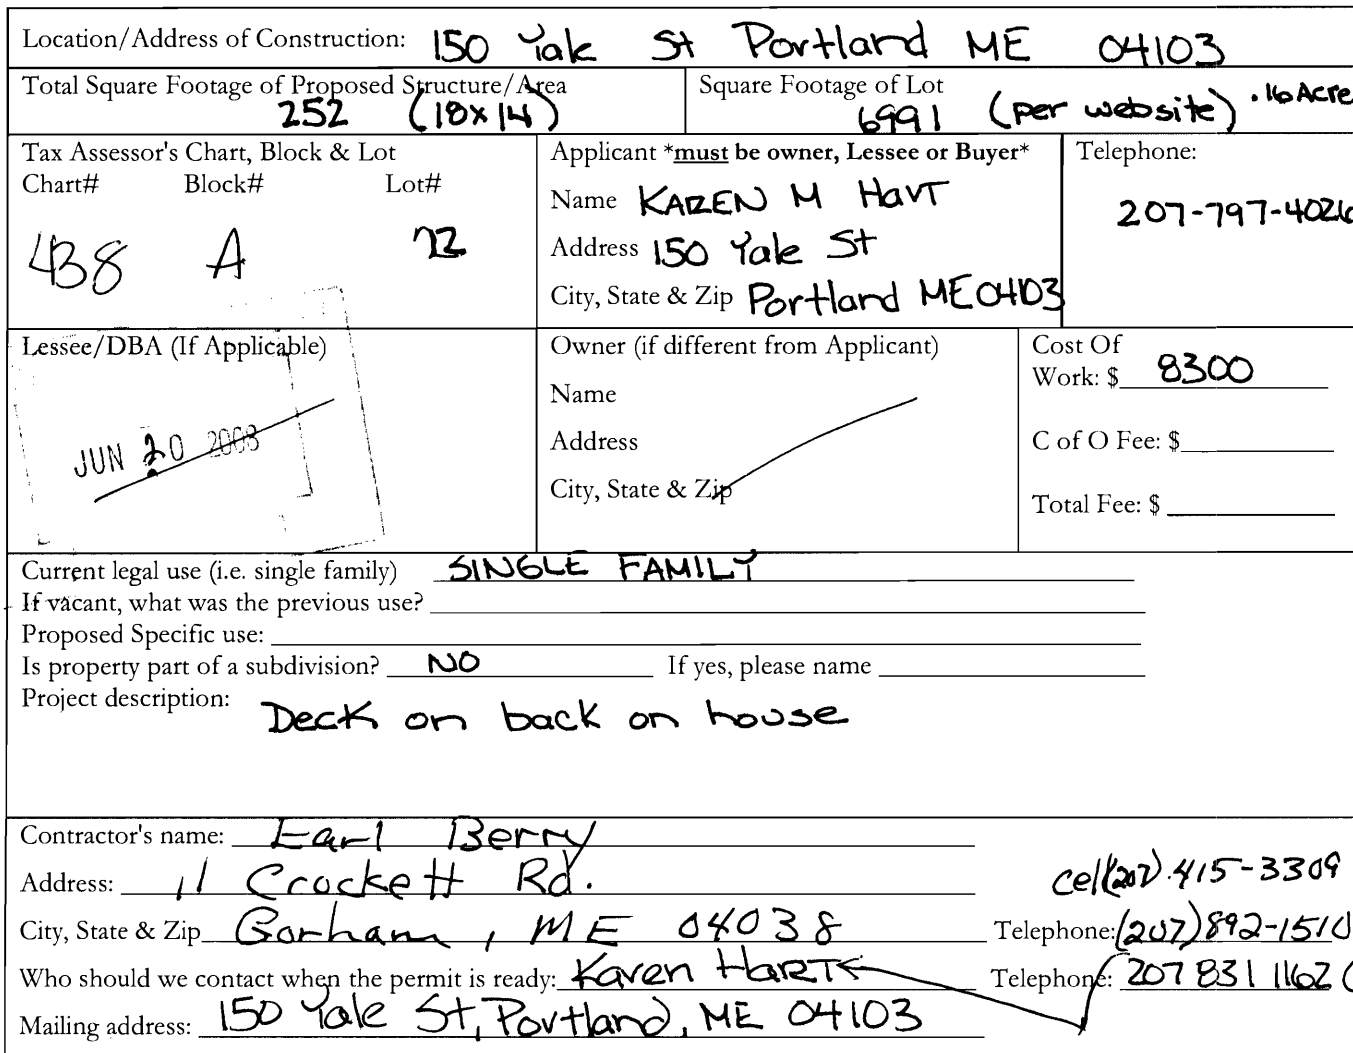 Location/Address of Construction: 150 Yale St Portland ME 04103
Total Square Footage of Proposed Structure/Area
252 (18x14)
Square Footage of Lot
6991 (per website) .16 Acre
Tax Assessor's Chart, Block & Lot
Chart# Block# Lot#
438 A 22
Applicant *must be owner, Lessee or Buyer*
Name KAREN M HART
Address 150 Yale St
City, State & Zip Portland ME 04103
Telephone:
207-797-4026
Lessee/DBA (If Applicable)
JUN 20 2008
Owner (if different from Applicant)
Name
Address
City, State & Zip
Cost Of
Work: $ 8300
C of O Fee: $
Total Fee: $
Current legal use (i.e. single family) SINGLE FAMILY
If vacant, what was the previous use?
Proposed Specific use:
Is property part of a subdivision? NO If yes, please name
Project description:
Deck on back on house
Contractor's name: Earl Berry
Address: 11 Crockett Rd. cell(207) 415-3309
City, State & Zip Gorham, ME 04038 Telephone: (207)892-1510
Who should we contact when the permit is ready: Karen HART Telephone: 207 831 1162 (
Mailing address: 150 Yale St, Portland, ME 04103